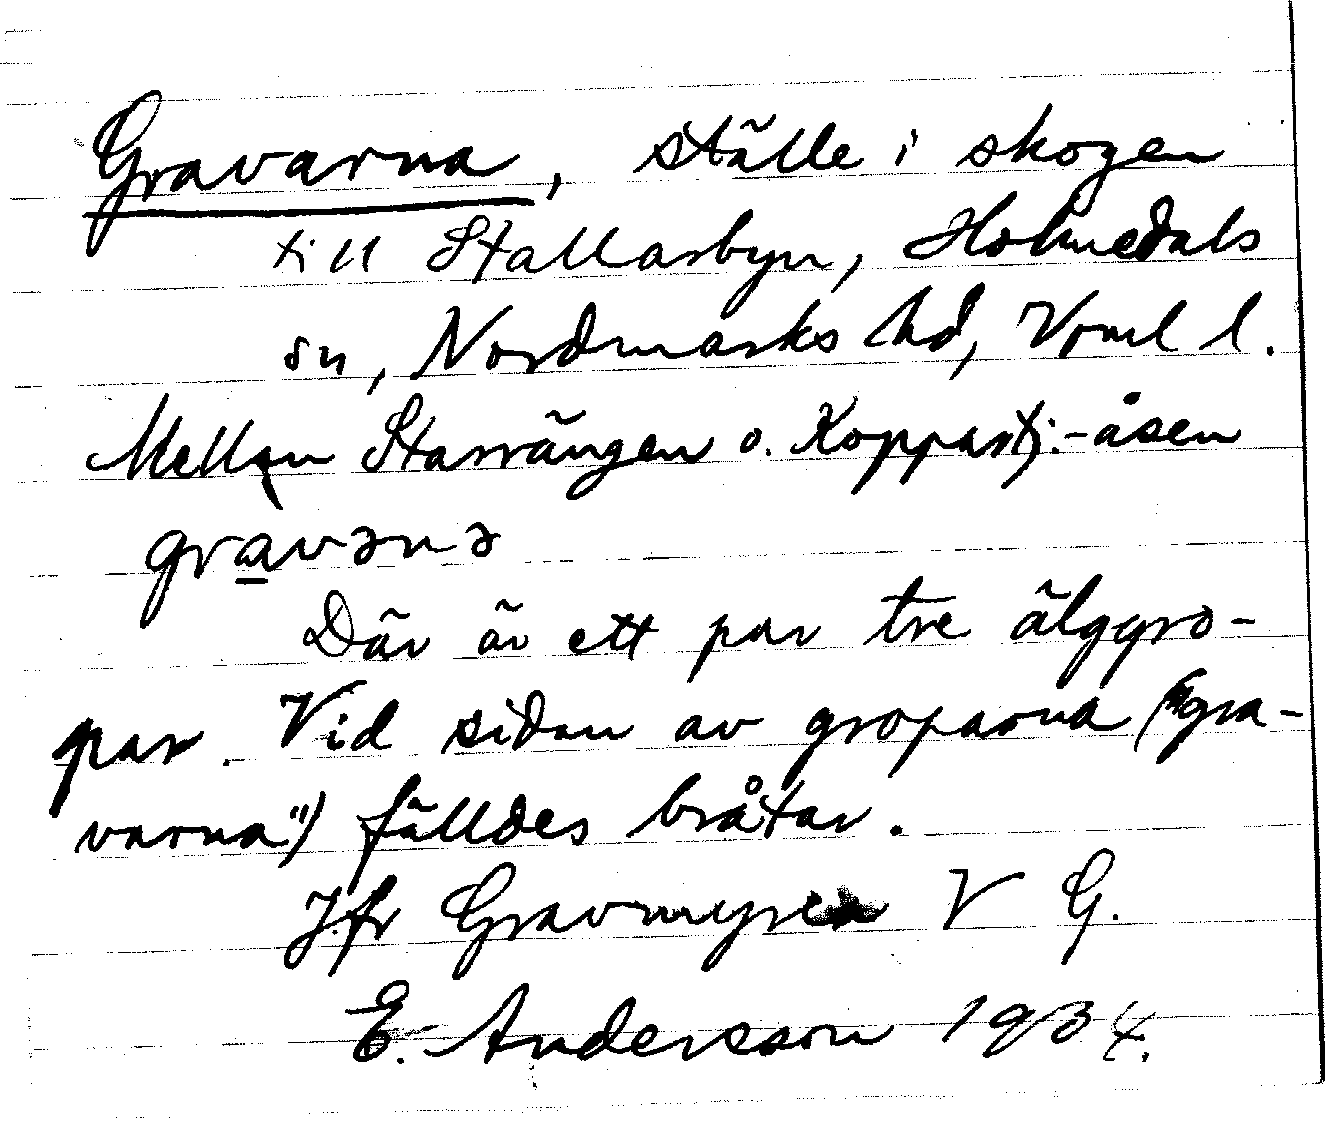 Gravarna, ställe i skogen
till Stallarbyn, Holmedals
sn, Nordmarks hd, Vrml l.
Mellan Starrängen o. Kopparstj.-åsen
gravənə
Där är ett par tre älggro-
par. Vid sidan av groparna ("gra-
varna") fälldes bråtar.
Jfr Gravmyren V G.
E. Andersson 1934.